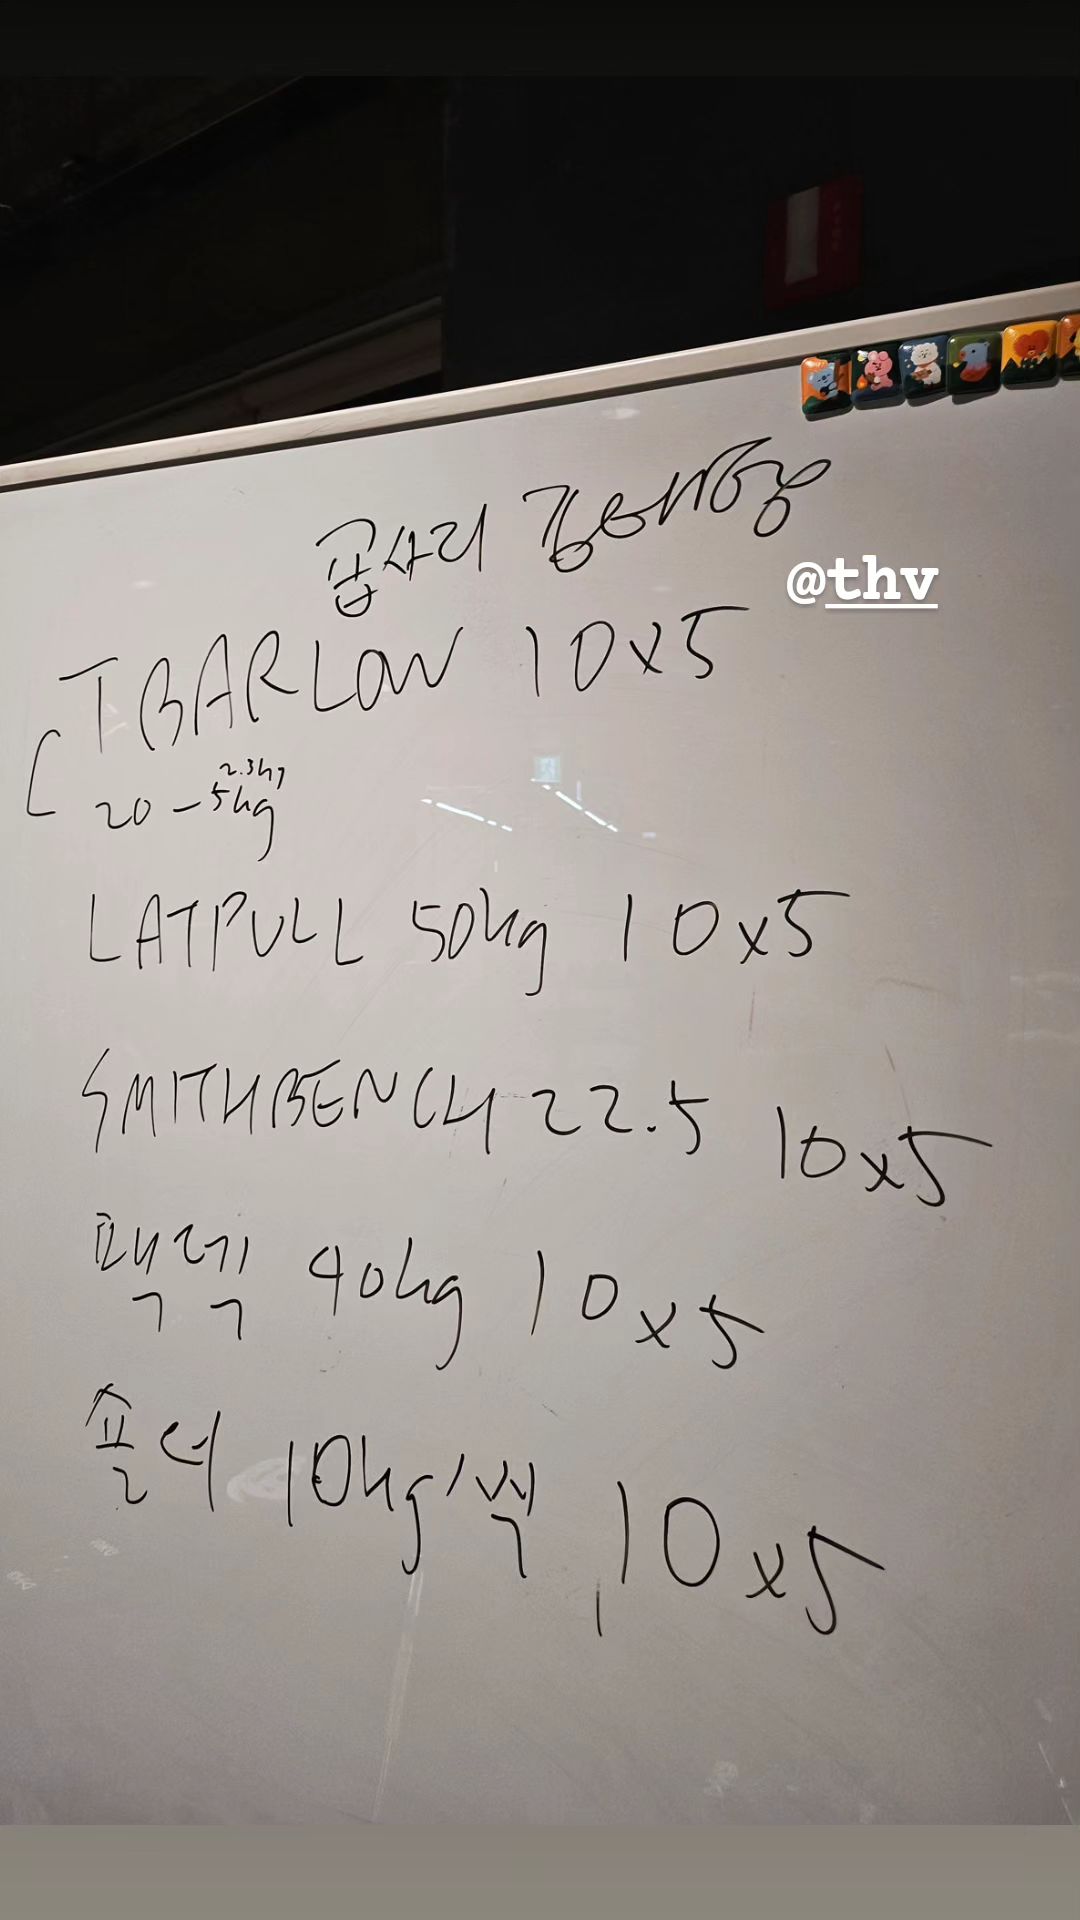 곱사리 김태형
@thv
TBARLOW 10x5
2.3kg
[ 20-5kg
LATPULL 50kg 10x5
SMITHBENCH 22.5 10x5
팩덱 40kg 10x5
숄더 10kg/쪽 10x5